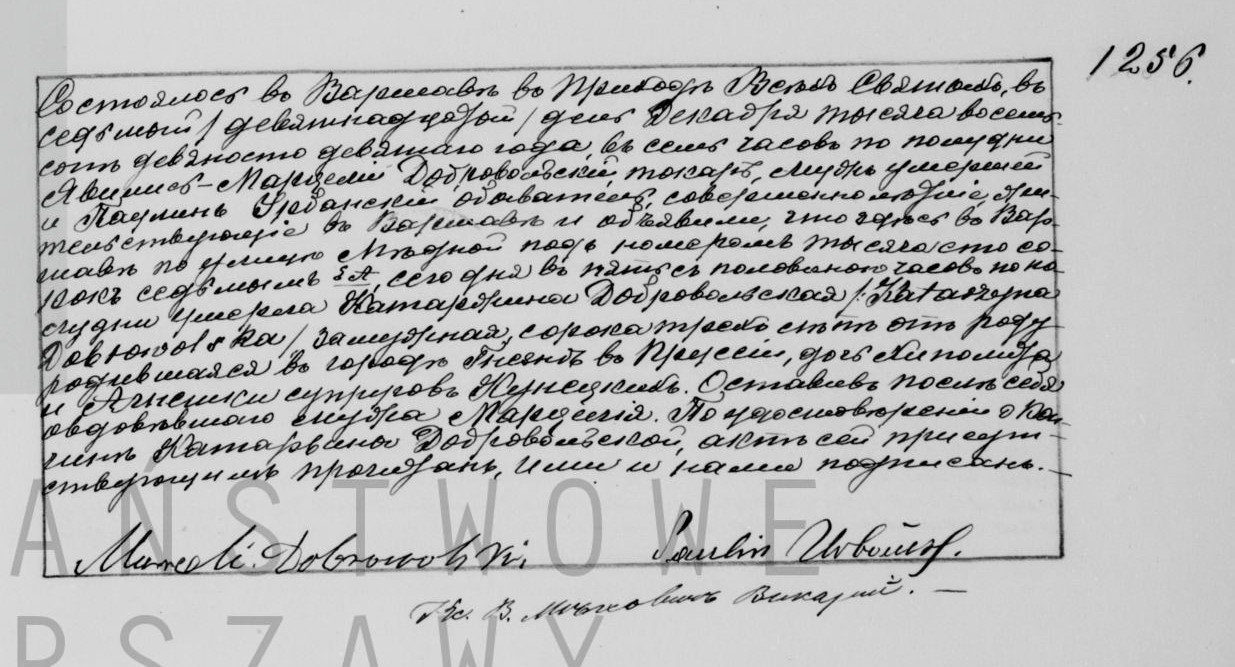 1256.
Состоялось въ Варшавѣ въ Приходѣ Всѣхъ Святыхъ, въ
седьмой / девятнадцатый / день Декабря тысяча восемь-
сотъ девяносто девятаго года, въ семь часовъ по полудни
Явились – Марцелій Добровольскій токарь, мужъ умершей
и Паулинъ Урбанскій обыватель, совершеннолѣтніе, жи-
тельствующіе въ Варшавѣ и объявили, что здѣсь въ Вар-
шавѣ по улицѣ Мѣдной подъ номеромъ тысяча сто со-
рокъ седьмымъ A, сего дня въ пять съ половиною часовъ по по-
лудни умерла Катаржина Добровольская /: Katarzyna
Dobrowolska / замужная, сорока трехъ лѣтъ отъ роду
родившаяся въ городѣ Гнезнѣ въ Пруссіи, дочь
и супруговъ. Оставивъ послѣ себя
овдовѣвшаго мужа Марцелія. По удостовѣреніи о кон-
чинѣ Катаржины Добровольской, актъ сей присут-
ствующимъ прочитанъ, ими и нами подписанъ. —
Marceli Dobrowolski Paulin
Кс. В. Викарій. —
AŃSTWOWE
RSZAWY